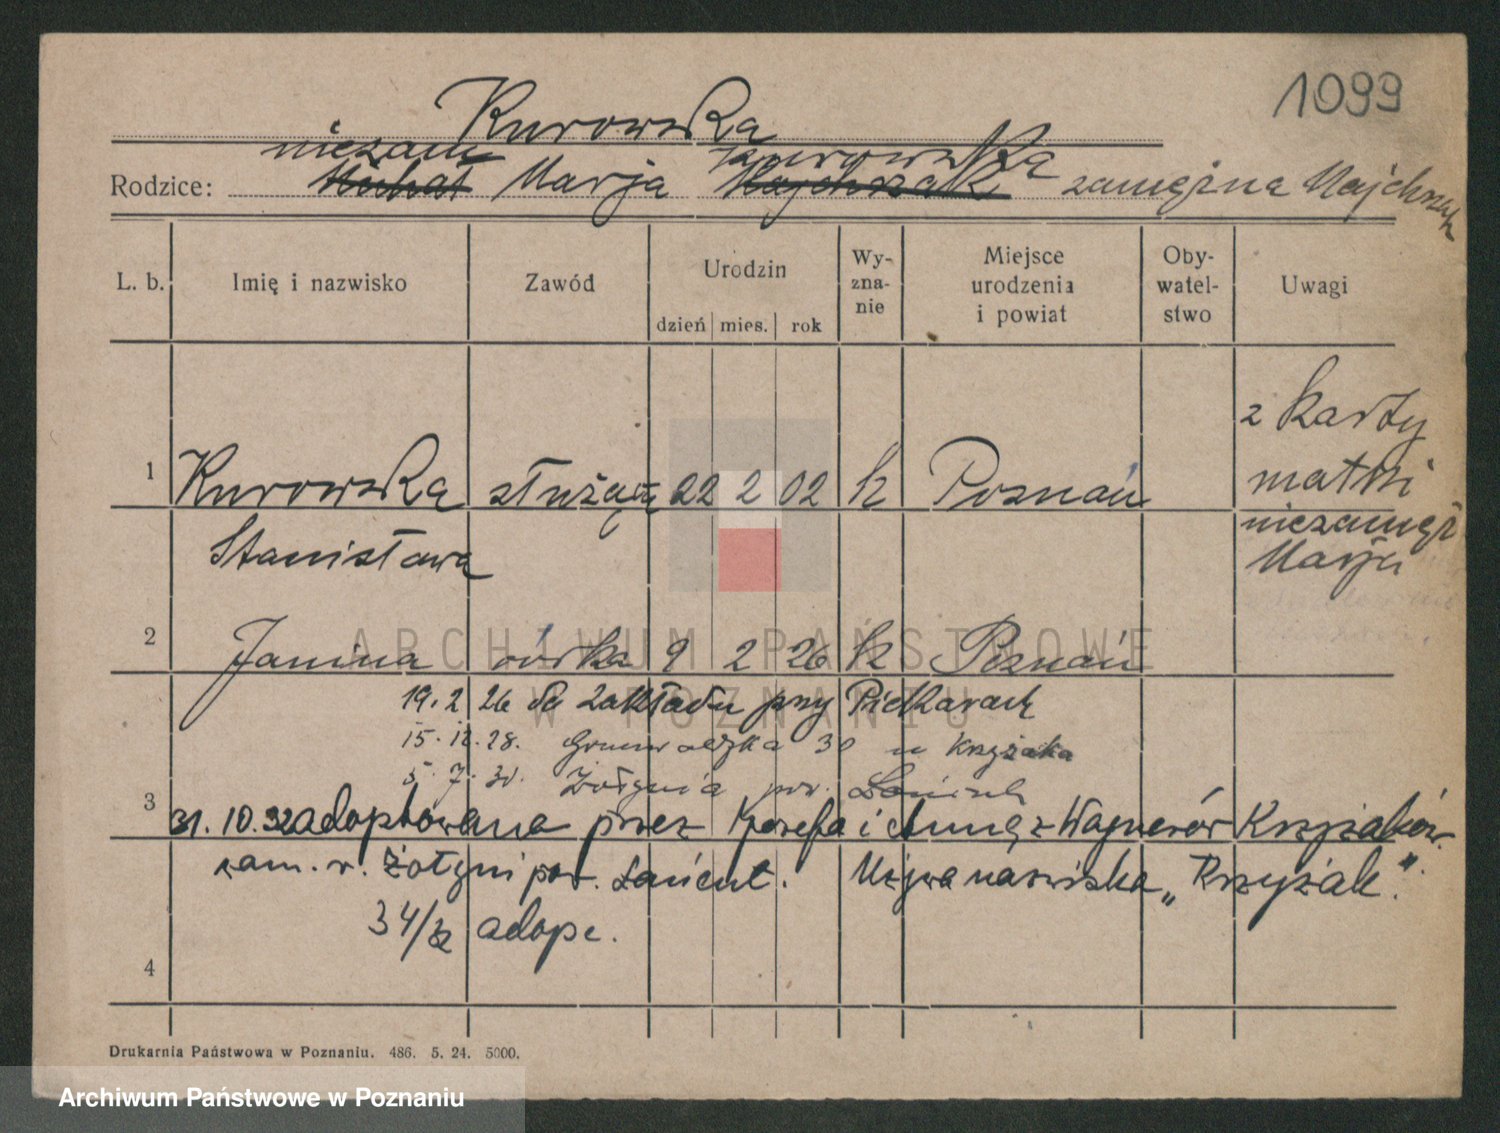 1099
Kurowska
niezam Kurowska
Rodzice: Michał Marja Majchrzak zamężna Majchrzak
L. b. Imię i nazwisko Zawód Urodzin dzień mies. rok Wyznanie Miejsce urodzenia i powiat Obywatelstwo Uwagi
z karty
1 Kurowska służąca 22 2 02 k Poznań matki
niezamęż
Stanisława Marja
2 Janina córka 9 2 26 k Poznań
19. 2 26 do Zakładu przy Piekarach
15. 12. 28. Grunwaldzka 30 u Krzyżaka
5. 7. 30. Żołynia pow. Łańcut
3 31. 10. 32 adoptowana przez Józefa i Annę z Wagnerów Krzyżaków.
zam. w. Żołyni pow. Łańcut. Używa nazwiska „Krzyżak".
34/32 adopc.
4
Drukarnia Państwowa w Poznaniu. 486. 5. 24. 5000.
ARCHIWUM PAŃSTWOWE
W POZNANIU
Archiwum Państwowe w Poznaniu